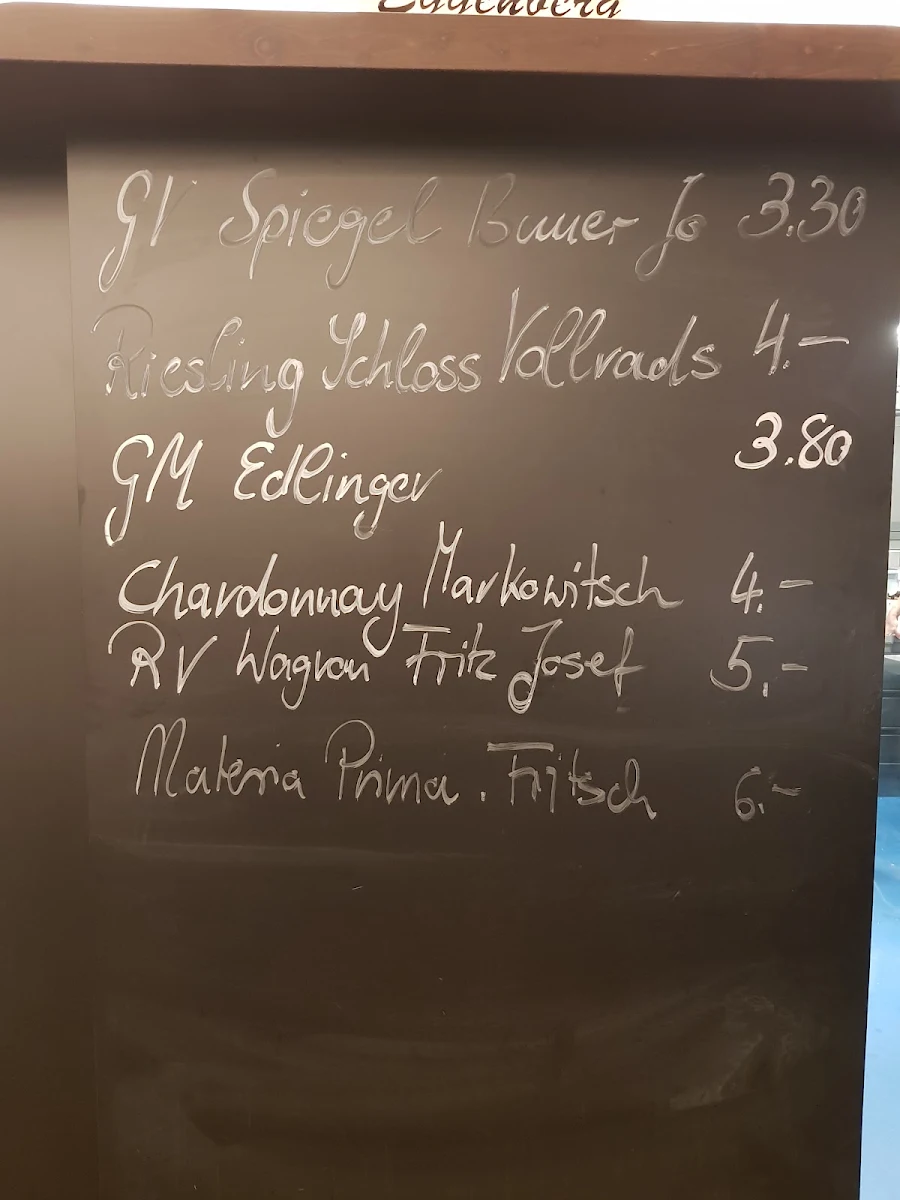 Eggenberg
GV Spiegel Bauer Jo 3.30
Riesling Schloss Vollrads 4.–
GM Edlinger 3.80
Chardonnay Markowitsch 4.–
RV Wagram Fritz Josef 5.–
Materia Prima. Fritsch 6.–